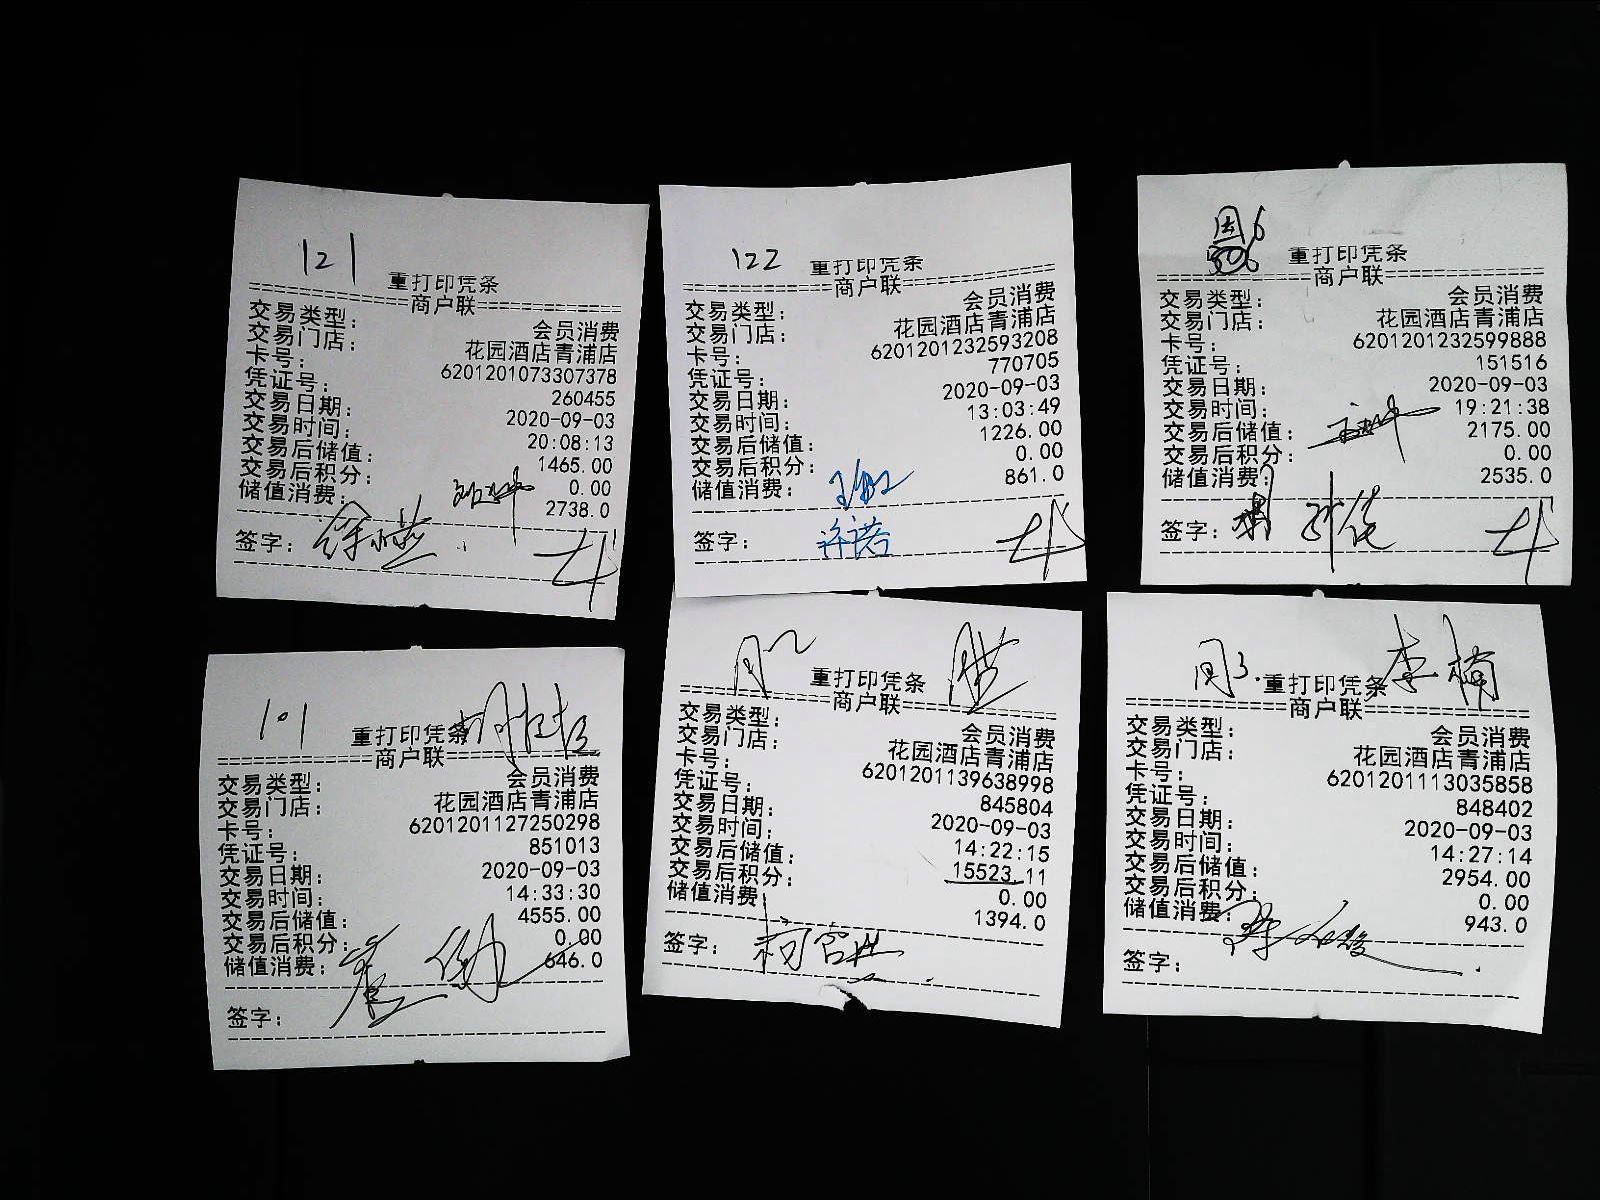 121
重打印凭条
==========商户联==========
交易类型: 会员消费
交易门店: 花园酒店青浦店
卡号: 6201201073307378
凭证号: 260455
交易日期: 2020-09-03
交易时间: 20:08:13
交易后储值: 1465.00
交易后积分: 0.00
储值消费: 2738.0
签字:
122
重打印凭条
==========商户联==========
交易类型: 会员消费
交易门店: 花园酒店青浦店
卡号: 6201201232593208
凭证号: 770705
交易日期: 2020-09-03
交易时间: 13:03:49
交易后储值: 1226.00
交易后积分: 0.00
储值消费: 861.0
签字: 许诺
重打印凭条
==========商户联==========
交易类型: 会员消费
交易门店: 花园酒店青浦店
卡号: 6201201232599888
凭证号: 151516
交易日期: 2020-09-03
交易时间: 19:21:38
交易后储值: 2175.00
交易后积分: 0.00
储值消费: 2535.0
签字:
101
重打印凭条
==========商户联==========
交易类型: 会员消费
交易门店: 花园酒店青浦店
卡号: 6201201127250298
凭证号: 851013
交易日期: 2020-09-03
交易时间: 14:33:30
交易后储值: 4555.00
交易后积分: 0.00
储值消费: 646.0
签字:
重打印凭条
==========商户联==========
交易类型: 会员消费
交易门店: 花园酒店青浦店
卡号: 6201201139638998
凭证号: 845804
交易日期: 2020-09-03
交易时间: 14:22:15
交易后储值: 15523.11
交易后积分: 0.00
储值消费: 1394.0
签字:
李楠
重打印凭条
==========商户联==========
交易类型: 会员消费
交易门店: 花园酒店青浦店
卡号: 6201201113035858
凭证号: 848402
交易日期: 2020-09-03
交易时间: 14:27:14
交易后储值: 2954.00
交易后积分: 0.00
储值消费: 943.0
签字: